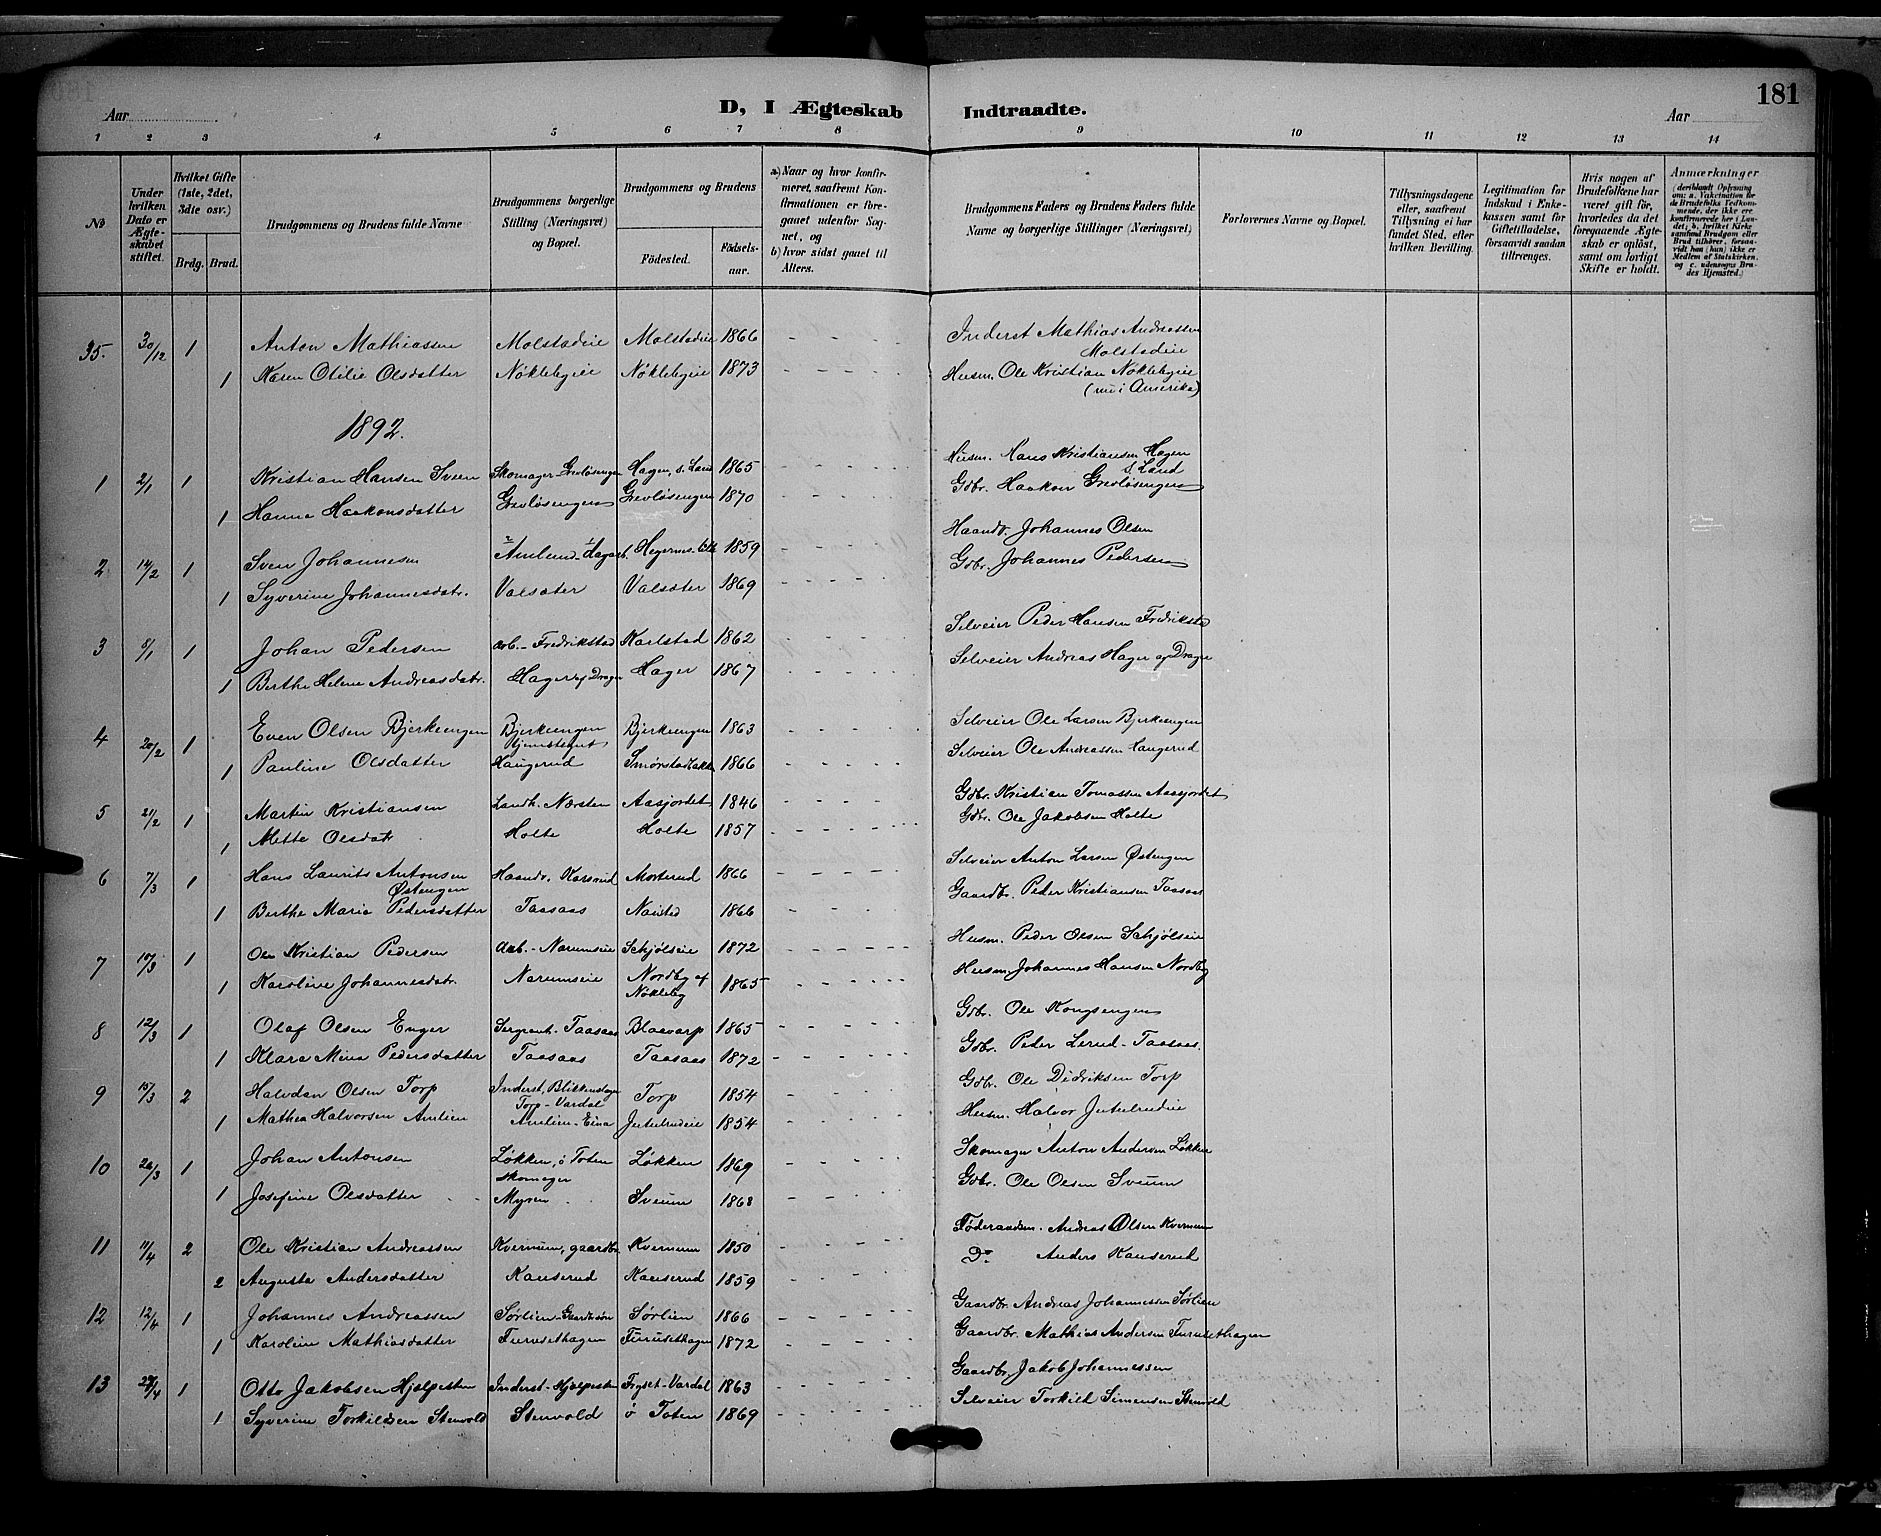 181
D, I Ægteskab Indtraadte.
Aar Aar
1 2 3 4 5 6 7 8 9 10 11 12 13 14
No
Under hvilken Dato er Ægteskabet stiftet.
Hvilket Gifte (1ste, 2det, 3die osv.)
Brdg. Brud.
Brudgommens og Brudens fulde Navne
Brudgommens borgerlige Stilling (Næringsvei) og Bopæl.
Brudgommens og Brudens
Födested. Födselsaar.
a) Naar og hvor konfirmeret, saafremt Konfirmationen er foregaaet udenfor Sognet, og
b) hvor sidst gaaet til Alters.
Brudgommens Faders og Brudens Faders fulde Navne og borgerlige Stillinger (Næringsvei)
Forlovernes Navne og Bopæl.
Tillysningsdagene eller, saafremt Tillysning ei har fundet Sted, efter hvilken Bevilling.
Legitimation for Indskud i Enkekassen samt for Giftetilladelse, forsaavidt saadan tiltrænges.
Hvis nogen af Brudefolkene har været gift för, hvorledes da det foregaaende Ægteskab er oplöst, samt om lovligt Skifte er holdt.
Anmærkninger (deriblandt Oplysning om: a. Vakcination for de Brudefolks Vedkommende, der ikke ere konfirmerede her i Landet; b. hvilket Kirkesamfund Brudgom eller Brud tilhörer, forsaavidt han (hun) ikke er Medlem af Statskirken, og c. udensogns Brudes Hjemsted.)
35. 30/12 1 Anton Mathiassen Molstadeie Molstadeie 1866 Inderst Mathias Andreassen Molstadeie
1 Karen Otilie Olsdatter Nöklebyeie Nöklebyeie 1873 Husm. Ole Kristian Nöklebyeie (nu i Amerika)
1892.
1 2/1 1 Kristian Hansen Sveen Skomager Grevlösengen Hagen, S. Land 1865 Husm. Hans Kristiansen Hagen S. Land
1 Hanna Haakonsdatter Grevlösengen Grevlösengen 1870 Gdbr. Haakon Grevlösengen
2 14/2 1 Sven Johannesen Amlund - dagarb. 1859 Haandv. Johannes Olsen
1 Syverine Johannesdatr. Valsæter Valsæter 1869 Gdbr. Johannes Pedersen
3 8/1 1 Johan Pedersen arb. - Fredrikstad Karlstad 1862 Selveier Peder Hansen Fredrikstad
1 Berthe Helene Andreasdatr. Hager af Drager Hager 1867 Selveier Andreas Hager af Drager
4 20/2 1 Even Olsen Bjerkeengen Bjerkeengen Bjerkeengen 1863 Selveier Ole Larsen Bjerkeengen
1 Pauline Olsdatter Haugerud Smörstadbakke 1866 Selveier Ole Andreassen Haugerud
5 21/2 1 Martin Kristiansen Landh. Nærsten Aasjordet 1846 Gdbr. Kristian Tomassen Aasjordet
1 Mette Olsdatr Holte Holte 1857 Gdbr. Ole Jakobsen Holte
6 7/3 1 Hans Laurits Antonsen Östengen Haandv. Karsrud Morterud 1866 Selveier Anton Larsen Östengen
1 Berthe Marie Pedersdatter Taasaas Naisted 1866 Gaardbr. Peder Kristiansen Taasaas
7 10/3 1 Ole Kristian Pedersen arb. - Narumseie Schjölseie 1872 Husm. Peder Olsen Schjölseie
1 Karoline Johannesdatr. Narumseie Nordby af Nökleby 1865 Husm. Johannes Hansen Nordby
8 12/3 1 Olaf Olsen Enger Sergeant - Taasaas Blaavarp 1865 Gdbr. Ole Kongsengen
1 Klara Mina Pedersdatter Taasaas Taasaas 1872 Gdbr. Peder Lerud - Taasaas.
9 15/3 2 Halvdan Olsen Torp Inderst, Blikkenslager Torp - Vardal Torp 1854 Gdbr. Ole Didriksen Torp
1 Mathea Halvorsen Amlien Amlien - Eina Jutulrudeie 1854 Husm. Halvor Jutulrudeie
10 26/3 1 Johan Antonsen Lökken, ö Toten Skomager Lökken 1869 Skomager Anton Andersen Lökken
1 Josefine Olsdatter Myren Sveum 1868 Gdbr. Ole Olsen Sveum
11 11/4 2 Ole Kristian Andreassen Kvernum, gaardbr. Kvernum 1850 Föderaadsm. Andreas Olsen Kvernum
2 Augusta Andersdatter Kauserud Kauserud 1859 Do Anders Kauserud
12 12/4 1 Johannes Andreassen Sörlien - Gaardbsön Sörlien 1866 Gaardbr. Andreas Johannessen Sörlien
1 Karoline Mathiasdatter Furusethagen Furusethagen 1872 Gaardbr. Mathias Andersen Furusethagen
13 27/4 1 Otto Jakobsen Hjelpesten Inderst - Hjelpesten Frydset - Vardal 1863 Gaardbr. Jakob Johannessen
1 Syverine Torkildsen Stenvold Stenvold ö Toten 1869 Selveier Torkild Simensen Stenvold